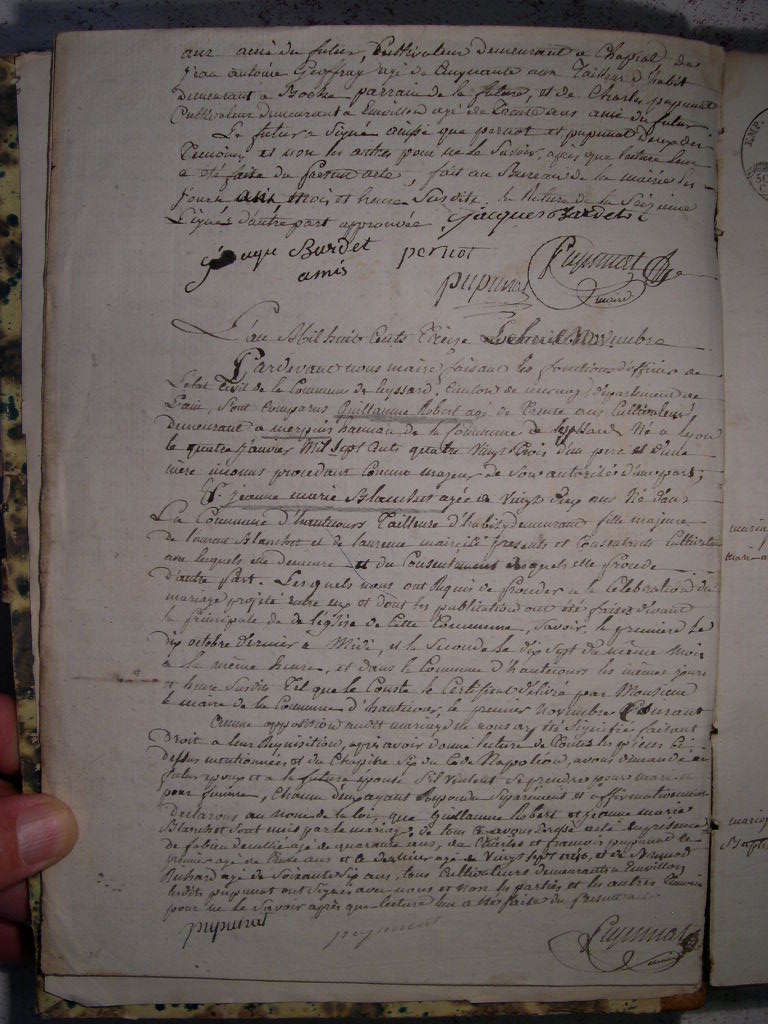 ans ami du futur, Cultivateur demeurant a Chapiat, de
jean antoine Geoffray agé de Cinquante ans Tailleur d'habit
demeurant a Boche parrain de la future, et de Charles pupunat
Cultivateur demeurant a Emvillon agé de Trente ans ami du futur
Le futur a Signé ainsi que pernot et pupunat deux des
Temoins, et non les autres pour ne le Savoir, après que lecture leur
a été faite du present acte, fait au Bureau de la mairie les
jour an mois et heure Susdits. la Rature de la Seizieme
Ligne d'autre part approuvée. jacques Burdet
jaque Burdet pernot
amis
pupunat
Pupunat
maire
L'an Mil huit Cents Treize Le Novembre
Pardevant nous maire faisant les fonctions d'officier de
l'etat Civil de la Commune de leyssard, Canton de département de
l'ain, Sont comparus Guillaume Robert agé de Trente ans Cultivateur,
demeurant a hameau de la Commune de leyssard Né a lyon
le quatre janvier Mil Sept Cents quatre Vingt Trois d'un pere et d'une
mère inconus procedant Comme majeur de Son autorité d'une part;
Et jeanne marie Blanchet agée de Vingt ans Né dans
La Commune d'hautecours Tailleuse d'habits y demeurant fille majeure
de laurent Blanchet et de laurence presents et Consentants Cultivateurs
avec lesquels elle demeure et du Consentement desquels elle procede
d'autre part. Lesquels nous ont Requis de proceder a la Celebration du
mariage projeté entre eux et dont les publications ont été faites devant
la principale de l'église de Cette Commune, Savoir, la premiere le
dix octobre Dernier a Midi, et la Seconde le dix Sept du même mois
a la même heure, et dans la Commune d'hautecours les mêmes jours
et heure Susdits Tel que le Conste le Certificat délivré par Monsieur
le maire de la Commune d'hautecour, le premier novembre Courant
Aucune opposition audit mariage ne nous ayant été Signifiée faisant
Droit a leur Requisition, après avoir donné lecture de Toutes les pièces Ci-
Dessus mentionnées et du Chapitre Six du Code Napoléon, avons demandé au
futur epoux et a la future epouse S'il veulent Se prendre pour mari et
pour femme, Chacun d'eux ayant Repondu Séparément et affirmativement
Declarons au nom de la loi, que Guillaume Robert et jeanne marie
Blanchet Sont unis par le mariage, de tout Ce avons Dressé acte En presence
de fabien agé de quarante ans, de Charles et francois pupunat le
premier agé de Trente ans et le dernier agé de Vingt Sept ans, et de
agé de Soixante Six ans, tous Cultivateurs demeurants a Emvillon
lesdits pupunat ont Signés avec nous et non les parties et les autres Temoins
pour ne le Savoir après que lecture leur a été faite du present
pupunat pupunat
Pupunat
maire